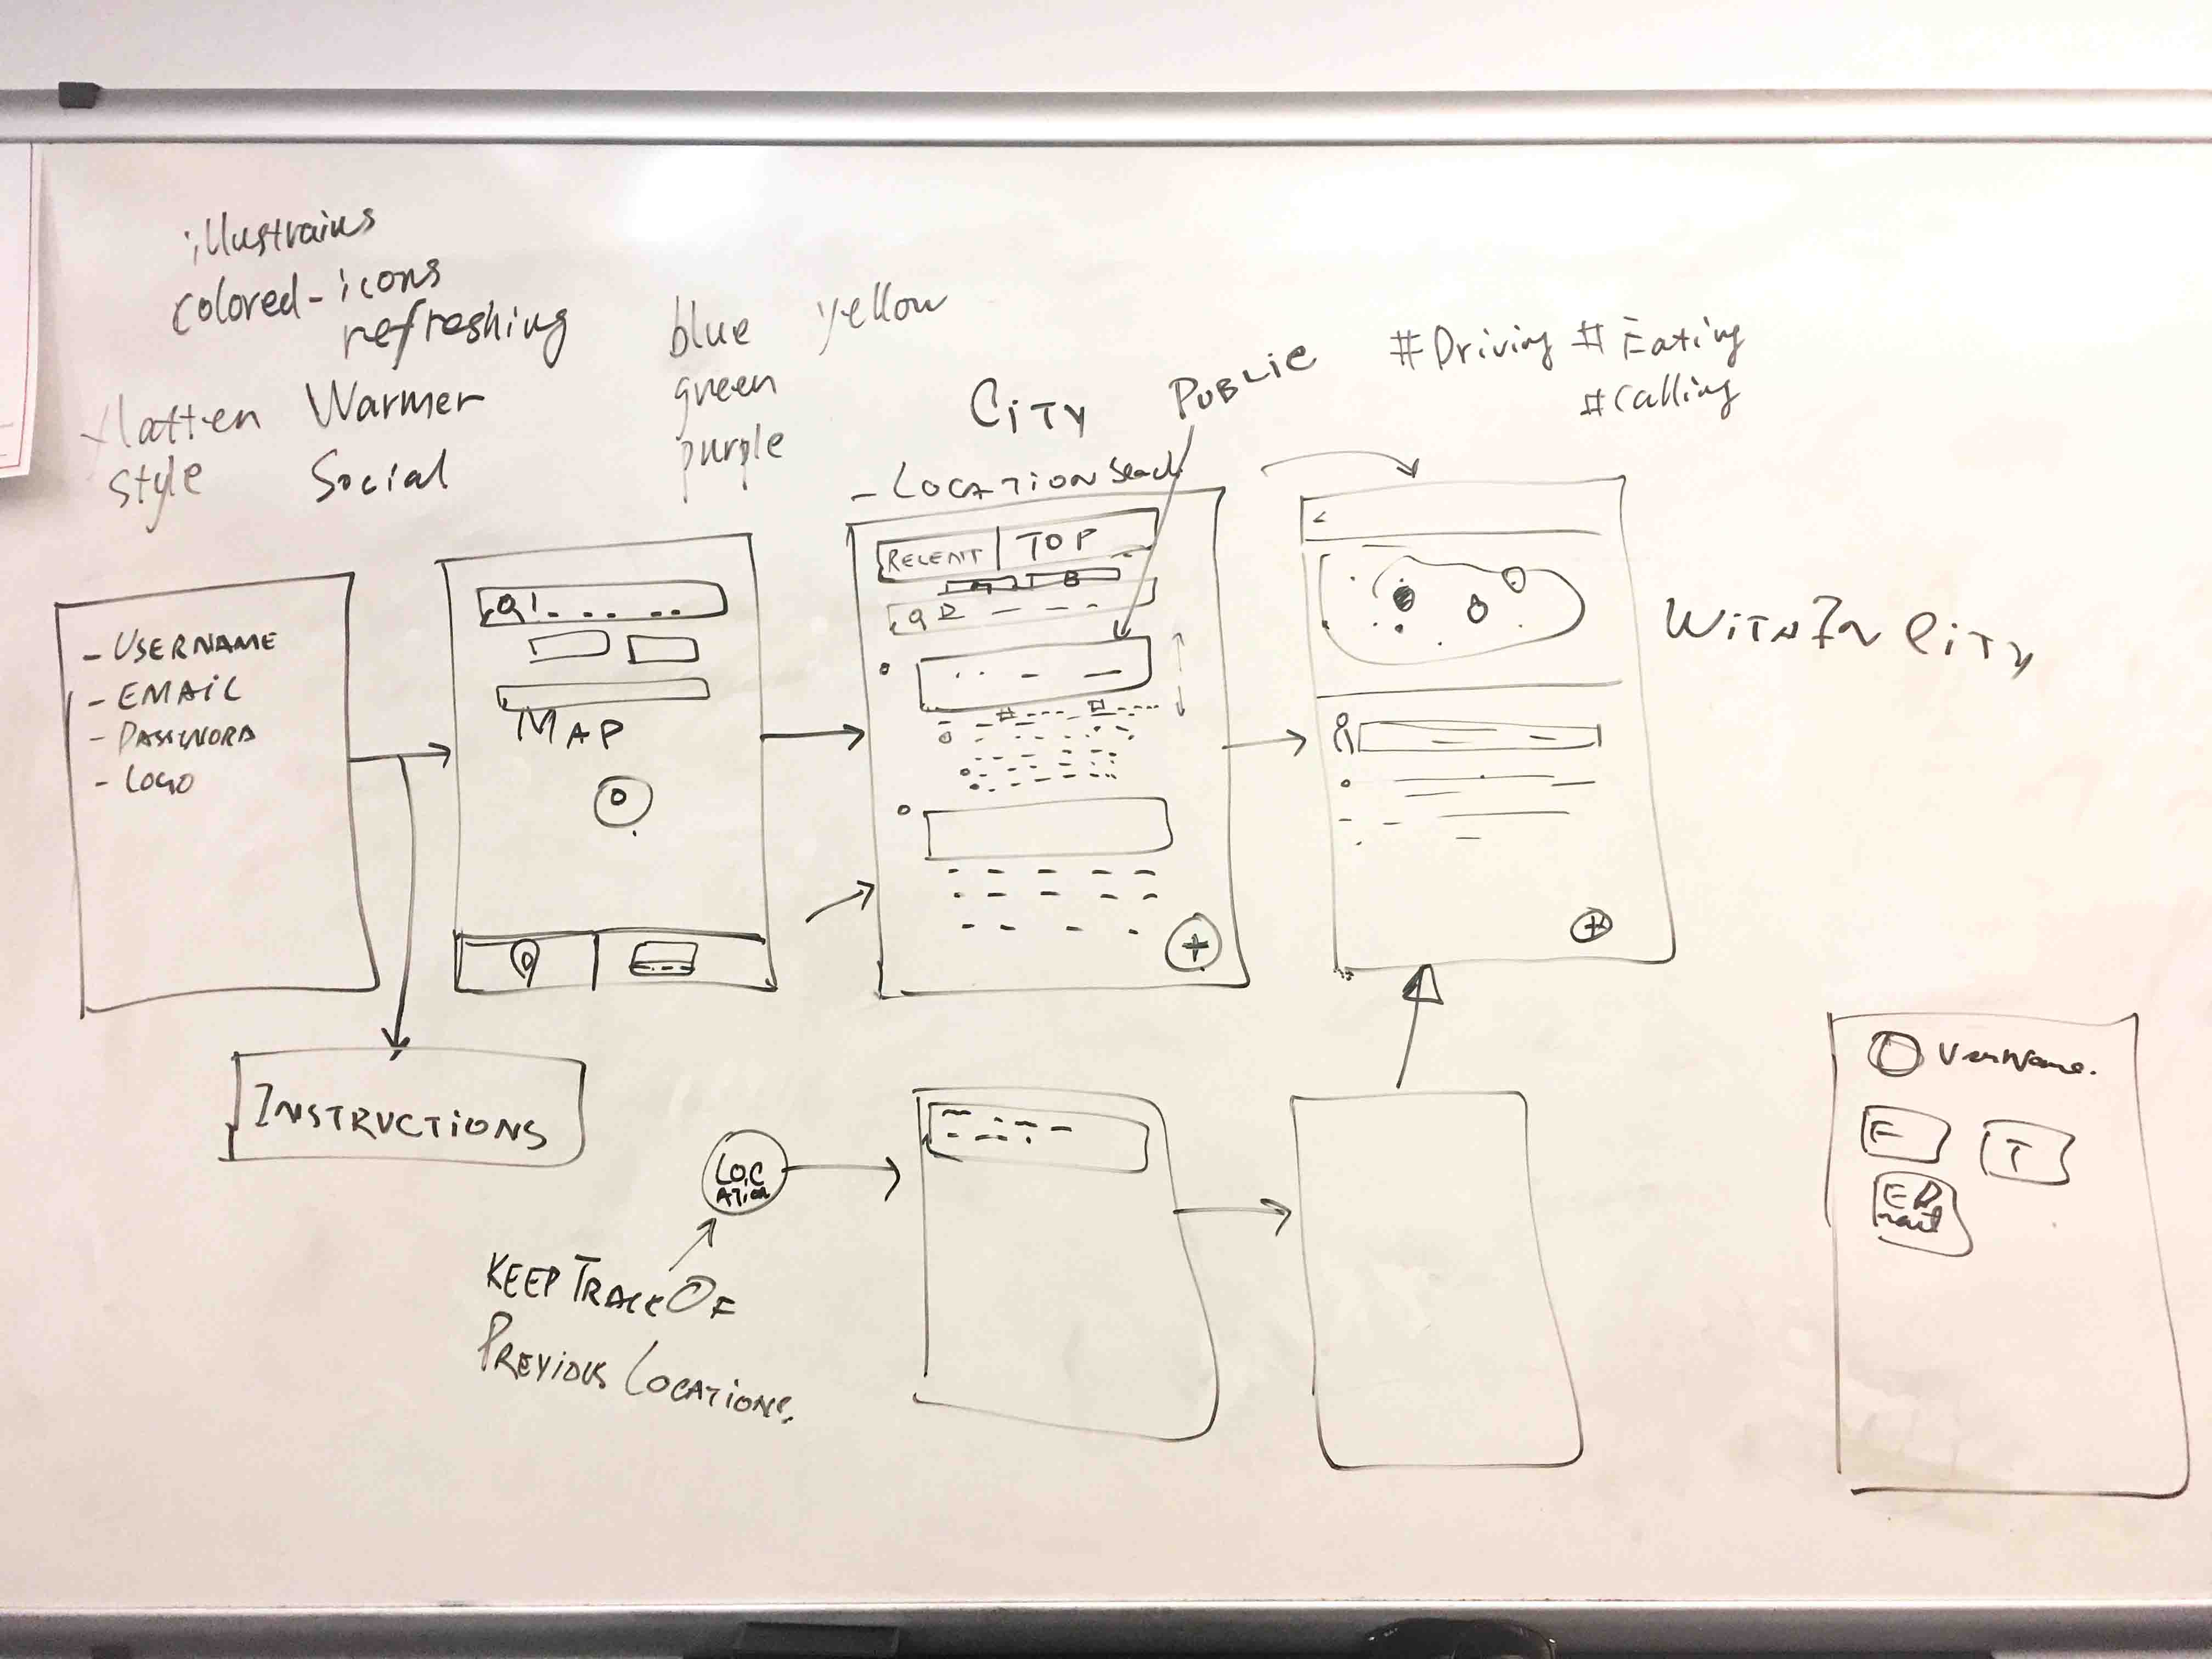 illustrains
colored-icons
refreshing
flatten
style
Warmer
Social
blue yellow
green
purple
CiTY
PUBLIC
#Driving #Eating
#Calling
- LOCATION Seach
- USERNAME
- EMAIL
- PASSWORD
- LOGO
MAP
RECENT TOP
A B
WITHIN CITY
INSTRUCTIONS
LOC
ATION
KEEP TRACK OF
PREVIOUS LOCATIONS.
UserName.
F T